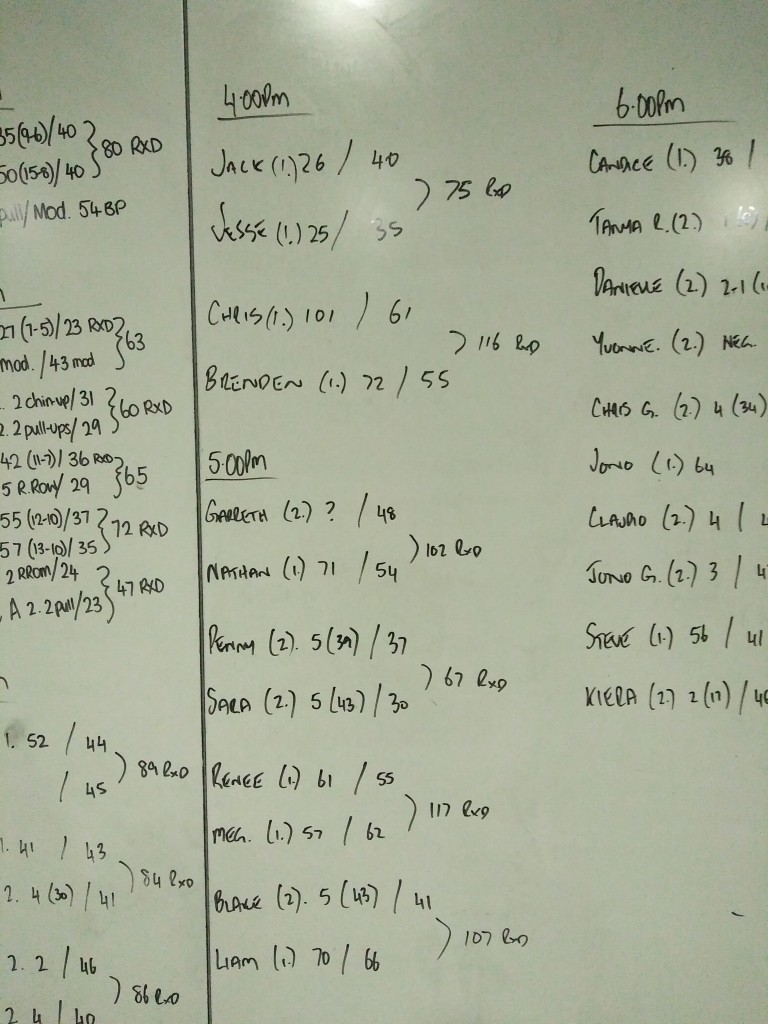 35(9-6)/40
80 RXD
50(15-8)/40
pull/Mod. 54 BP
27 (7-5)/23 RXD
63
mod. /43 mod
2 chin-up/31
60 RXD
2. 2 pull-ups/29
42 (11-7)/36 RXD
65
5 R.Row/ 29
55 (12-10)/37
72 RXD
57 (13-10)/35
2 RRom/24
47 RXD
A 2. 2 pull/23
1. 52 / 44
89 RxD
/ 45
1. 41 / 43
84 RxD
2. 4 (30) / 41
2. 2 / 46
86 RxD
2 4 / 40
4.00Pm
JACK (1.) 26 / 40
75 RxD
JESSE (1.) 25 / 35
CHRIS (1.) 101 / 61
116 RxD
BRENDEN (1.) 72 / 55
5.00Pm
GARRETH (2.) ? / 48
102 RxD
NATHAN (1.) 71 / 54
PENNY (2). 5 (39) / 37
67 RxD
SARA (2.) 5 (43) / 30
RENEE (1.) 61 / 55
117 RxD
MEG. (1.) 57 / 62
BLAKE (2). 5 (43) / 41
107 RxD
LIAM (1.) 70 / 66
6.00Pm
CANDACE (1.) 38 /
TANYA R. (2.)
DANIELLE (2.) 2-1
YVONNE. (2.) NEG.
CHRIS G. (2.) 4 (34)
JONO (1.) 64
CLAUDIO (2.) 4 /
JONO G. (2.) 3 / 4
STEVE (1.) 56 / 41
KIERA (2.) 2 (17) / 46